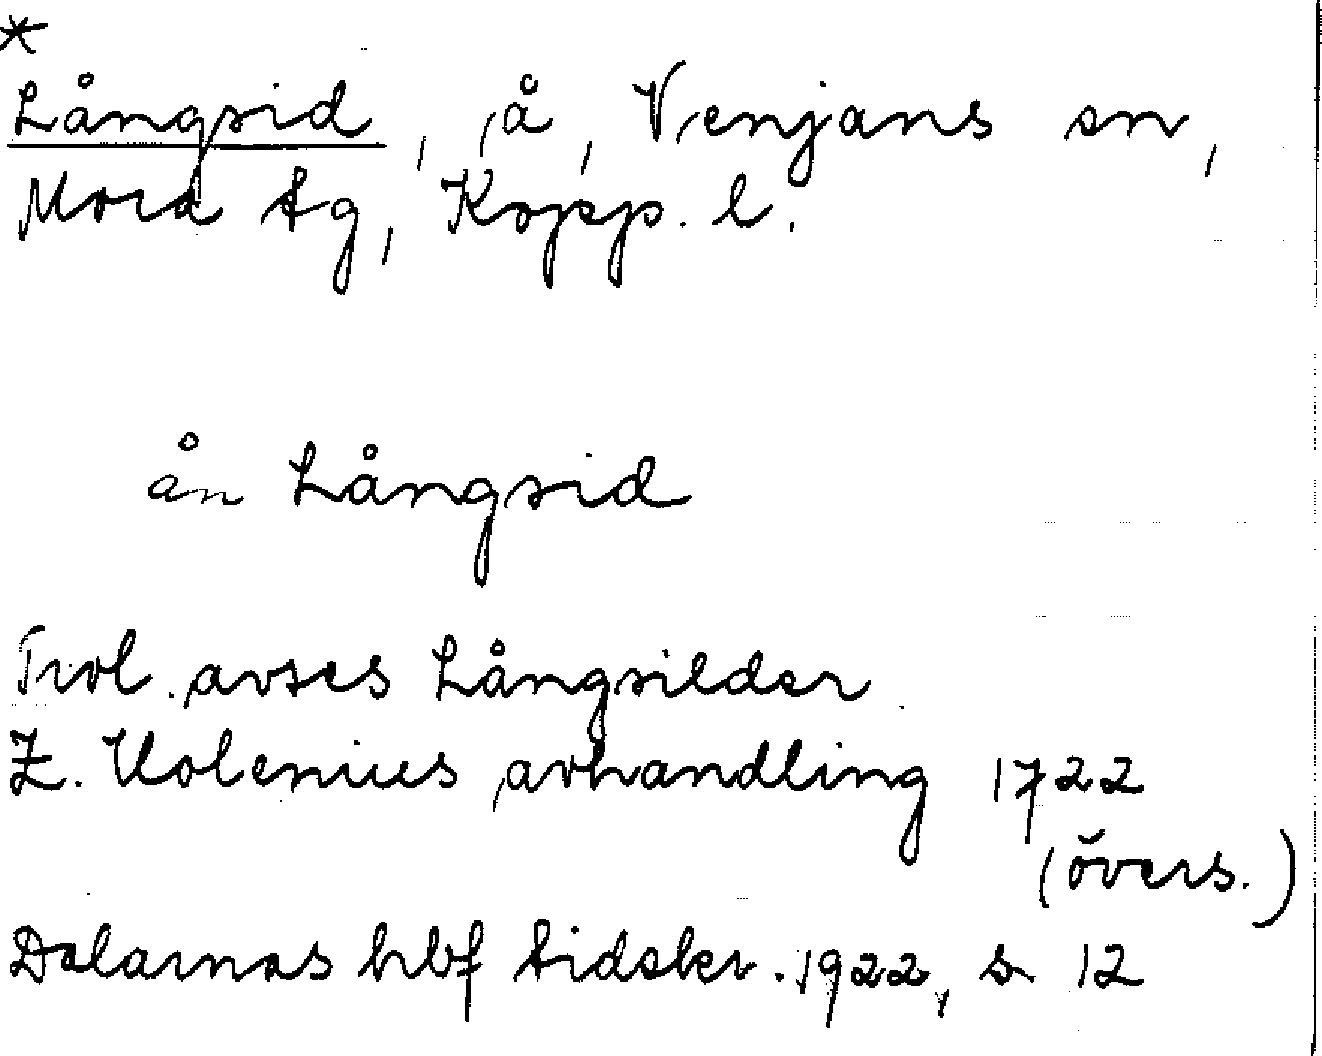 *
Långsid, å, Venjans sn,
Mora tg, Kopp. l.
ån Långsid
Trol. avses Långsilder
Z. Holenius avhandling 1722
(övers.)
Dalarnas hbf tidskr. 1922, s 12